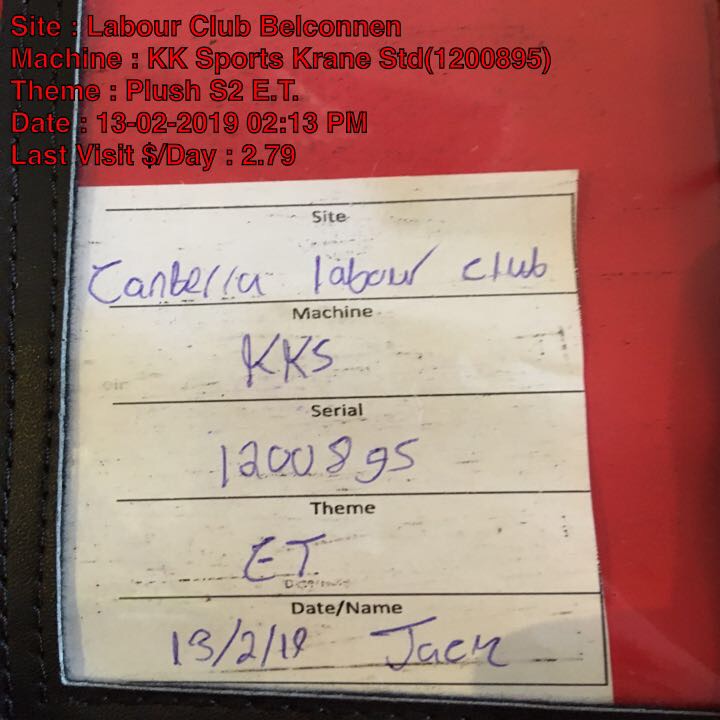 Site : Labour Club Belconnen
Machine : KK Sports Krane Std(1200895)
Theme : Plush S2 E.T.
Date : 13-02-2019 02:13 PM
Last Visit $/Day : 2.79
Site
Canberra labour club
Machine
KKS
Serial
1200895
Theme
ET
Date/Name
13/2/19 Jack